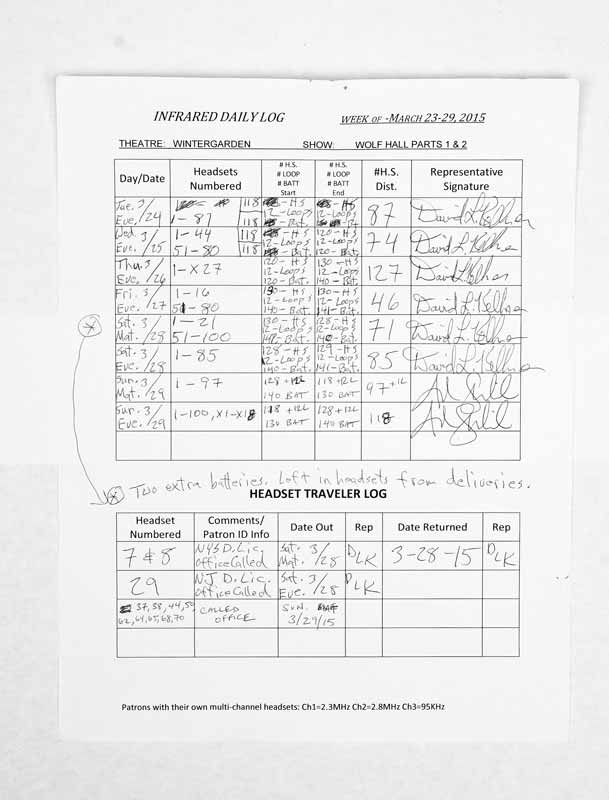 INFRARED DAILY LOG WEEK OF -MARCH 23-29, 2015
THEATRE: WINTERGARDEN SHOW: WOLF HALL PARTS 1 & 2
Day/Date Headsets Numbered # H.S. # LOOP # BATT Start # H.S. # LOOP # BATT End #H.S. Dist. Representative Signature
Tue. 3/24 Eve. 1-87 118 118 -HS 12-Loops -Bat. -HS 12-Loops 87 David L. Kellner
Wed. 3/25 Eve. 1-44 51-80 118 118 -HS 12-Loops -Bat. 120-HS 12-Loops 120-Bat. 74 David L. Kellner
Thu. 3/26 Eve. 1-X27 120-HS 12-Loops 120-Bat. 130-HS 12-Loops 140-Bat. 127 David L. Kellner
Fri. 3/27 Eve. 1-16 51-80 130-HS 12-Loops 140-Bat. 130-HS 12-Loops 141-Bat. 46 David L. Kellner
Sat. 3/28 Mat. 1-21 51-100 130-HS 12-Loops 128-HS 12-Loops 71 David L. Kellner
Sat. 3/28 Eve. 1-85 128-HS 12-Loops 140-Bat. 129-HS 12-Loops 141-Bat. 85 David L. Kellner
Sun. 3/29 Mat. 1-97 128+12L 140 BAT 118+12L 130 BAT 97+1L
Sun. 3/29 Eve. 1-100, X1-X18 118+12L 130 BAT 128+12L 140 BAT 118
* Two extra batteries. Left in headsets from deliveries.
HEADSET TRAVELER LOG
Headset Numbered Comments/ Patron ID Info Date Out Rep Date Returned Rep
7 & 8 NYS D. Lic. Office Called Sat. Mat. 3/28 DLK 3-28-15 DLK
29 NJ D. Lic. Office Called Sat. Eve. 3/28 DLK
37, 38, 44, 50 62, 64, 65, 68, 70 CALLED OFFICE SUN. 3/29/15
Patrons with their own multi-channel headsets: Ch1=2.3MHz Ch2=2.8MHz Ch3=95KHz